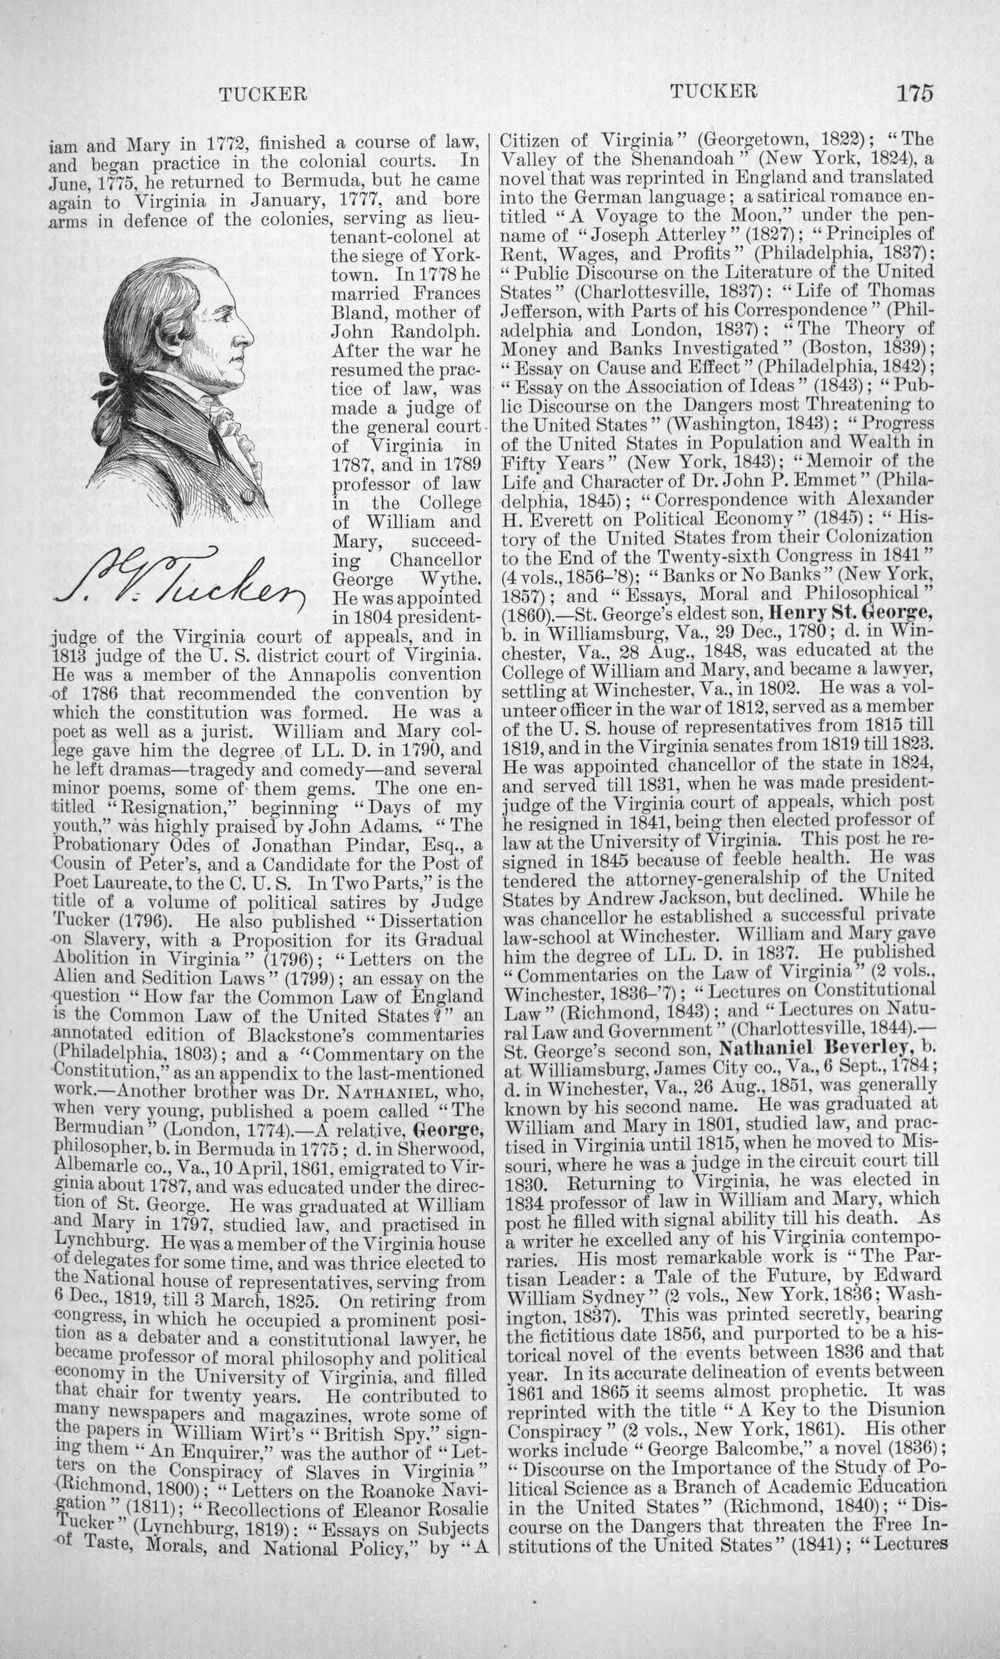 TUCKER
TUCKER 175
iam and Mary in 1772, finished a course of law,
and began practice in the colonial courts. In
June, 1775, he returned to Bermuda, but he came
again to Virginia in January, 1777, and bore
arms in defence of the colonies, serving as lieu-
tenant-colonel at
the siege of York-
town. In 1778 he
married Frances
Bland, mother of
John Randolph.
After the war he
resumed the prac-
tice of law, was
made a judge of
the general court
of Virginia in
1787, and in 1789
professor of law
in the College
of William and
Mary, succeed-
ing Chancellor
George Wythe.
He was appointed
in 1804 president-
S. G. Tucker
judge of the Virginia court of appeals, and in
1813 judge of the U. S. district court of Virginia.
He was a member of the Annapolis convention
of 1786 that recommended the convention by
which the constitution was formed. He was a
poet as well as a jurist. William and Mary col-
lege gave him the degree of LL. D. in 1790, and
he left dramas—tragedy and comedy—and several
minor poems, some of them gems. The one en-
titled "Resignation," beginning "Days of my
youth," was highly praised by John Adams. "The
Probationary Odes of Jonathan Pindar, Esq., a
Cousin of Peter's, and a Candidate for the Post of
Poet Laureate, to the C. U. S. In Two Parts," is the
title of a volume of political satires by Judge
Tucker (1796). He also published "Dissertation
on Slavery, with a Proposition for its Gradual
Abolition in Virginia" (1796); "Letters on the
Alien and Sedition Laws" (1799); an essay on the
question "How far the Common Law of England
is the Common Law of the United States?" an
annotated edition of Blackstone's commentaries
(Philadelphia, 1803); and a "Commentary on the
Constitution," as an appendix to the last-mentioned
work.—Another brother was Dr. NATHANIEL, who,
when very young, published a poem called "The
Bermudian" (London, 1774).—A relative, George,
philosopher, b. in Bermuda in 1775; d. in Sherwood,
Albemarle co., Va., 10 April, 1861, emigrated to Vir-
ginia about 1787, and was educated under the direc-
tion of St. George. He was graduated at William
and Mary in 1797, studied law, and practised in
Lynchburg. He was a member of the Virginia house
of delegates for some time, and was thrice elected to
the National house of representatives, serving from
6 Dec., 1819, till 3 March, 1825. On retiring from
congress, in which he occupied a prominent posi-
tion as a debater and a constitutional lawyer, he
became professor of moral philosophy and political
economy in the University of Virginia, and filled
that chair for twenty years. He contributed to
many newspapers and magazines, wrote some of
the papers in William Wirt's "British Spy," sign-
ing them "An Enquirer," was the author of "Let-
ters on the Conspiracy of Slaves in Virginia"
(Richmond, 1800); "Letters on the Roanoke Navi-
gation" (1811); "Recollections of Eleanor Rosalie
Tucker" (Lynchburg, 1819); "Essays on Subjects
of Taste, Morals, and National Policy," by "A
Citizen of Virginia" (Georgetown, 1822); "The
Valley of the Shenandoah" (New York, 1824), a
novel that was reprinted in England and translated
into the German language; a satirical romance en-
titled "A Voyage to the Moon," under the pen-
name of "Joseph Atterley" (1827); "Principles of
Rent, Wages, and Profits" (Philadelphia, 1837);
"Public Discourse on the Literature of the United
States" (Charlottesville, 1837); "Life of Thomas
Jefferson, with Parts of his Correspondence" (Phil-
adelphia and London, 1837); "The Theory of
Money and Banks Investigated" (Boston, 1839);
"Essay on Cause and Effect" (Philadelphia, 1842);
"Essay on the Association of Ideas" (1843); "Pub-
lic Discourse on the Dangers most Threatening to
the United States" (Washington, 1843); "Progress
of the United States in Population and Wealth in
Fifty Years" (New York, 1843); "Memoir of the
Life and Character of Dr. John P. Emmet" (Phila-
delphia, 1845); "Correspondence with Alexander
H. Everett on Political Economy" (1845); "His-
tory of the United States from their Colonization
to the End of the Twenty-sixth Congress in 1841"
(4 vols., 1856-'8); "Banks or No Banks" (New York,
1857); and "Essays, Moral and Philosophical"
(1860).—St. George's eldest son, Henry St. George,
b. in Williamsburg, Va., 29 Dec., 1780; d. in Win-
chester, Va., 28 Aug., 1848, was educated at the
College of William and Mary, and became a lawyer,
settling at Winchester, Va., in 1802. He was a vol-
unteer officer in the war of 1812, served as a member
of the U. S. house of representatives from 1815 till
1819, and in the Virginia senates from 1819 till 1823.
He was appointed chancellor of the state in 1824,
and served till 1831, when he was made president-
judge of the Virginia court of appeals, which post
he resigned in 1841, being then elected professor of
law at the University of Virginia. This post he re-
signed in 1845 because of feeble health. He was
tendered the attorney-generalship of the United
States by Andrew Jackson, but declined. While he
was chancellor he established a successful private
law-school at Winchester. William and Mary gave
him the degree of LL. D. in 1837. He published
"Commentaries on the Law of Virginia" (2 vols.,
Winchester, 1836-'7); "Lectures on Constitutional
Law" (Richmond, 1843); and "Lectures on Natu-
ral Law and Government" (Charlottesville, 1844).—
St. George's second son, Nathaniel Beverley, b.
at Williamsburg, James City co., Va., 6 Sept., 1784;
d. in Winchester, Va., 26 Aug., 1851, was generally
known by his second name. He was graduated at
William and Mary in 1801, studied law, and prac-
tised in Virginia until 1815, when he moved to Mis-
souri, where he was a judge in the circuit court till
1830. Returning to Virginia, he was elected in
1834 professor of law in William and Mary, which
post he filled with signal ability till his death. As
a writer he excelled any of his Virginia contempo-
raries. His most remarkable work is "The Par-
tisan Leader: a Tale of the Future, by Edward
William Sydney" (2 vols., New York, 1836; Wash-
ington, 1837). This was printed secretly, bearing
the fictitious date 1856, and purported to be a his-
torical novel of the events between 1836 and that
year. In its accurate delineation of events between
1861 and 1865 it seems almost prophetic. It was
reprinted with the title "A Key to the Disunion
Conspiracy" (2 vols., New York, 1861). His other
works include "George Balcombe," a novel (1836);
"Discourse on the Importance of the Study of Po-
litical Science as a Branch of Academic Education
in the United States" (Richmond, 1840); "Dis-
course on the Dangers that threaten the Free In-
stitutions of the United States" (1841); "Lectures